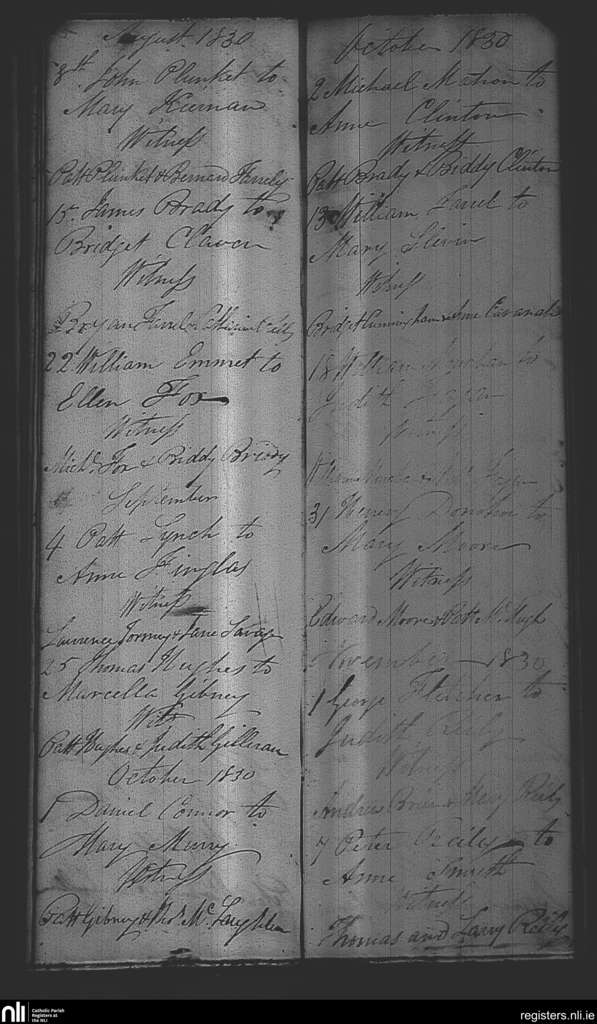 August 1830
8th John Plunket to
Mary Kiernan
Witness
Patt Plunket & Bernard Farrely
15 James Brady to
Bridget Claven
Witness
Bryan Farrel &
22 William Emmet to
Ellen Fox
Witness
Michl. Fox & Biddy Briody
September
4 Patt Lynch to
Anne Finglas
Witness
Laurence Tormey & Jane Savage
25 Thomas Hughes to
Marcella Gibney
Witss
Patt Hughes & Judith Gilleran
October 1830
1 Daniel Connor to
Mary Murry
Witness
Patt Gibney & Thos. McLaughlin
October 1830
2 Michael Mahon to
Anne Clinton
Witness
Patt Brady & Biddy Clinton
13 William Farrel to
Mary Slevin
Witness
Bridget Cunningham & Anne Cavanah
18 William to
Judith
Witness
31 Henry Donohoe to
Mary Moore
Witness
Edward Moore & Patt McHugh
November 1830
1 George Fletcher to
Judith Reily
Witness
Andrew Brien & Mary Reily
7 Peter Reily to
Anne Smith
Witness
Thomas and Larry Reily
nli
Catholic Parish
Registers at
the NLI
registers.nli.ie